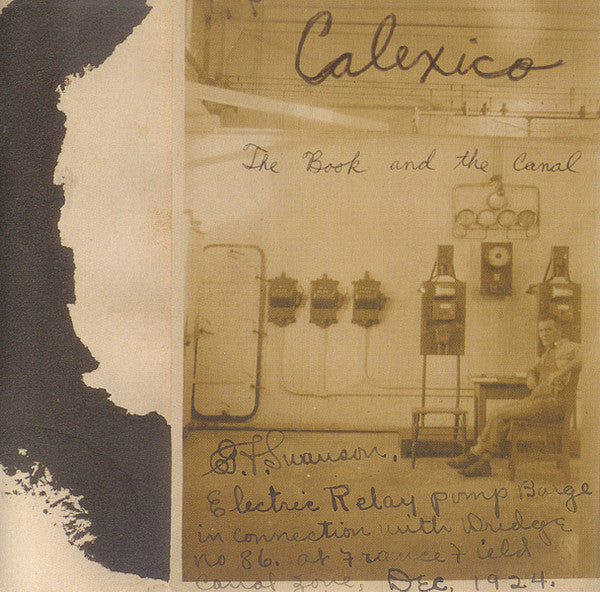 Calexico
The Book and the Canal
G. F. Swanson.
Electric Relay pump Barge
in connection with Dredge
no 86. at France Field
Canal Zone, Dec. 1924.